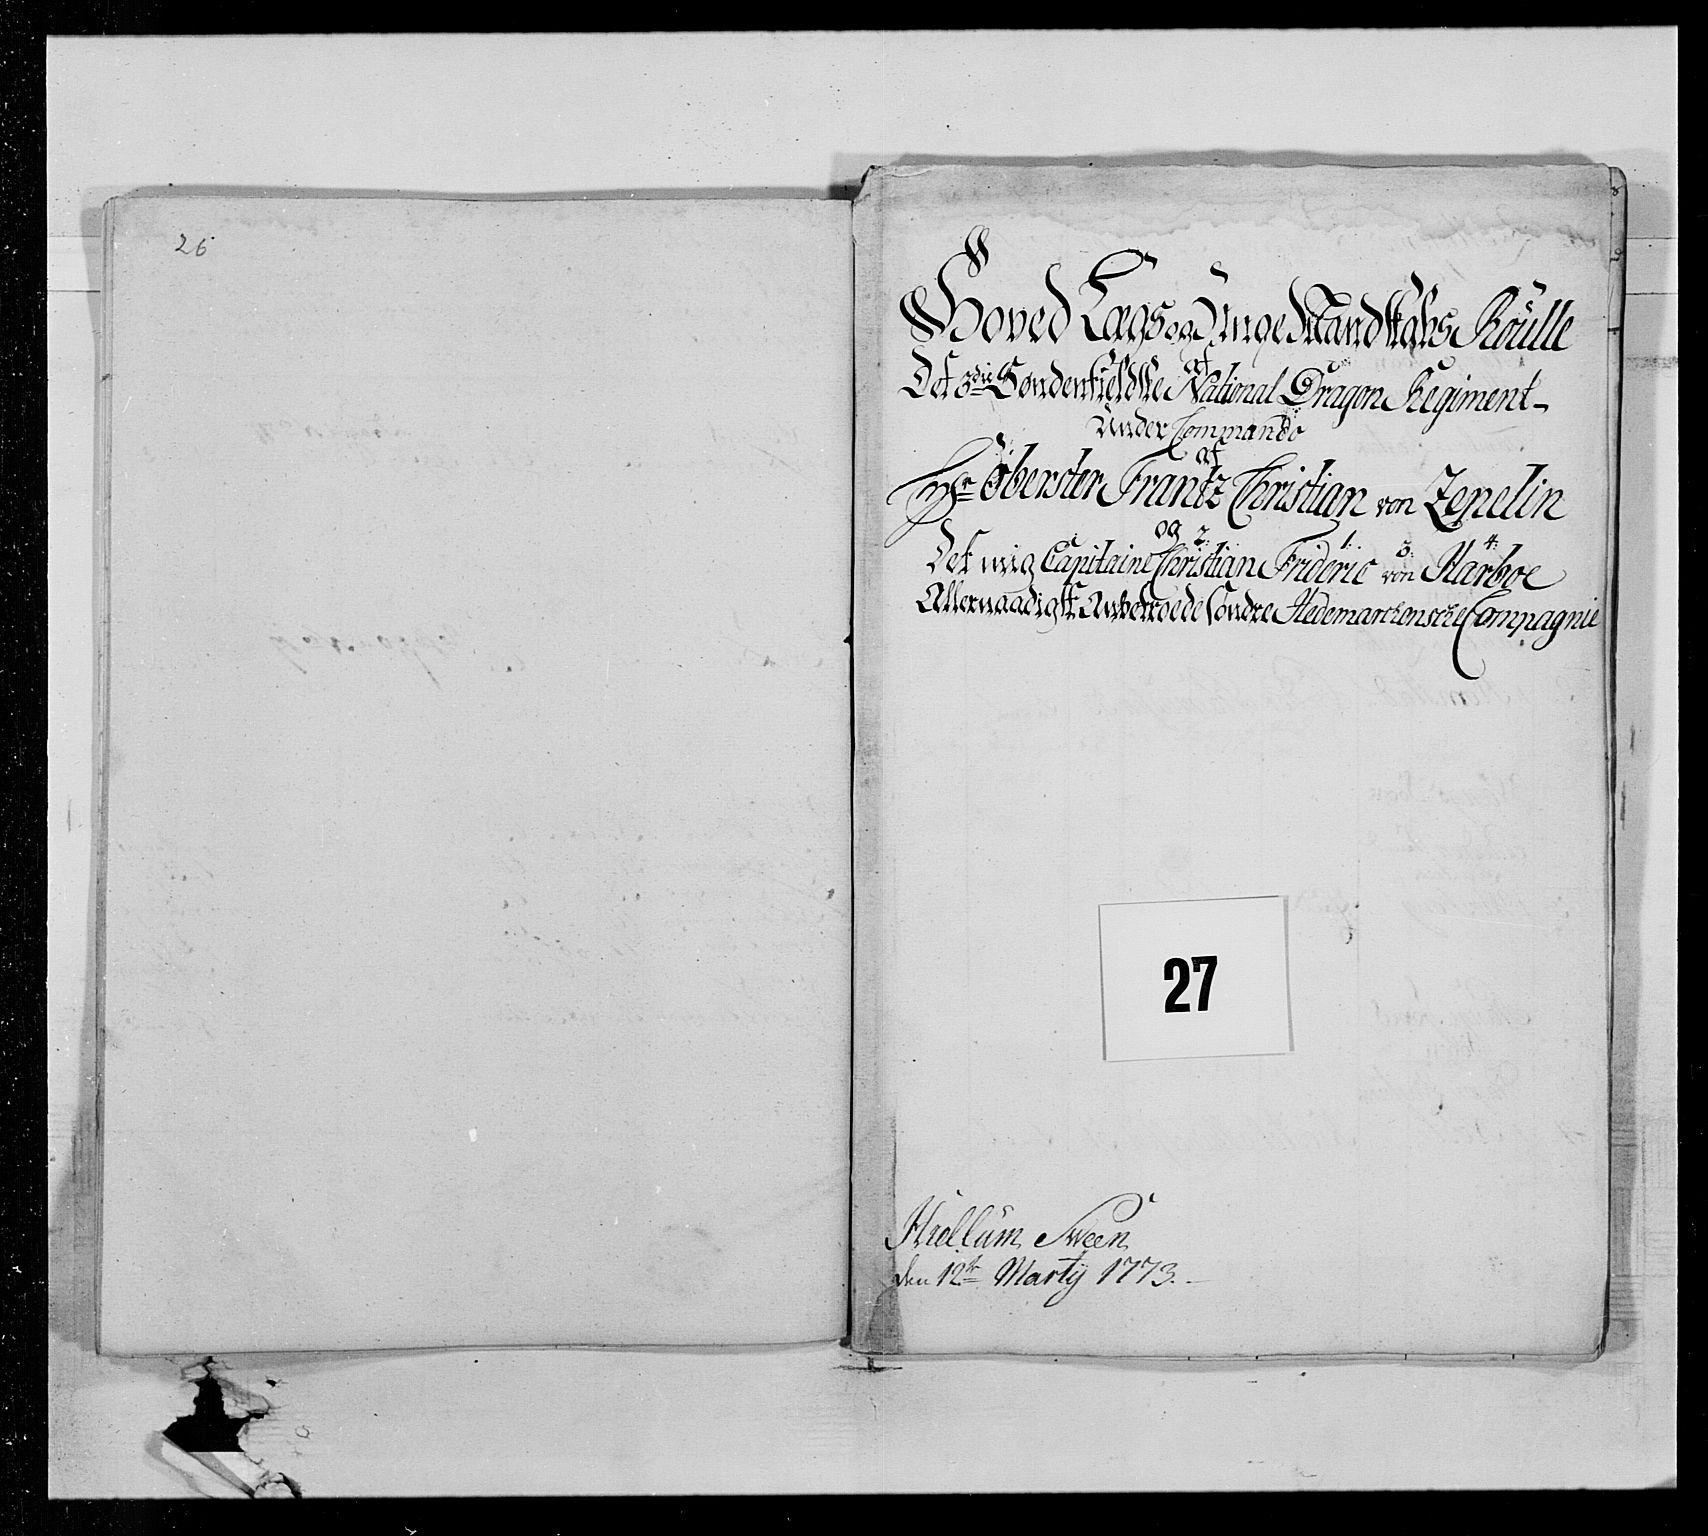 26
Hoved Lægs og Unge Mandskabs Roülle
af
Det 3die Søndenfieldske National Dragon Regiment
Under Commando
af
Hr Öberster Frantz Christian von Zepelin
og
2. 1. 3. 4.
Det mig Capitaine Christian Frideric von Harboe
Allernaadigst Anbetroede Söndre Hedemarchensche Compagnie
27
Hiellüm Sween
den 12te Marty 1773.